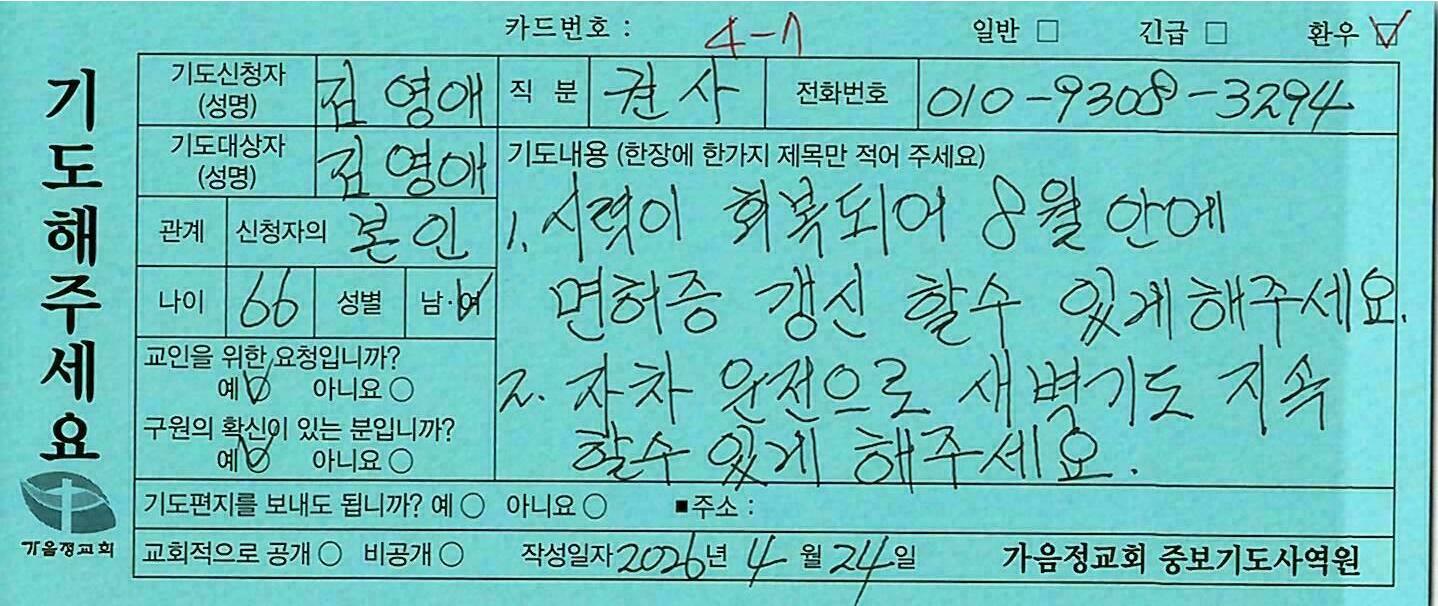 카드번호 : 4-7 일반 □ 긴급 □ 환우 ☑
기도해주세요
기도신청자 (성명) 김영애 직 분 권사 전화번호 010-9308-3294
기도대상자 (성명) 김영애
관계 신청자의 본인
나이 66 성별 남·여
교인을 위한 요청입니까?
예 ○ 아니요 ○
구원의 확신이 있는 분입니까?
예 ○ 아니요 ○
기도내용 (한장에 한가지 제목만 적어 주세요)
1. 시력이 회복되어 8월 안에
면허증 갱신 할수 있게 해주세요.
2. 자차 운전으로 새벽기도 지속
할수 있게 해주세요.
기도편지를 보내도 됩니까? 예 ○ 아니요 ○ ■주소 :
교회적으로 공개 ○ 비공개 ○ 작성일자 2026년 4월 24일 가음정교회 중보기도사역원
가음정교회